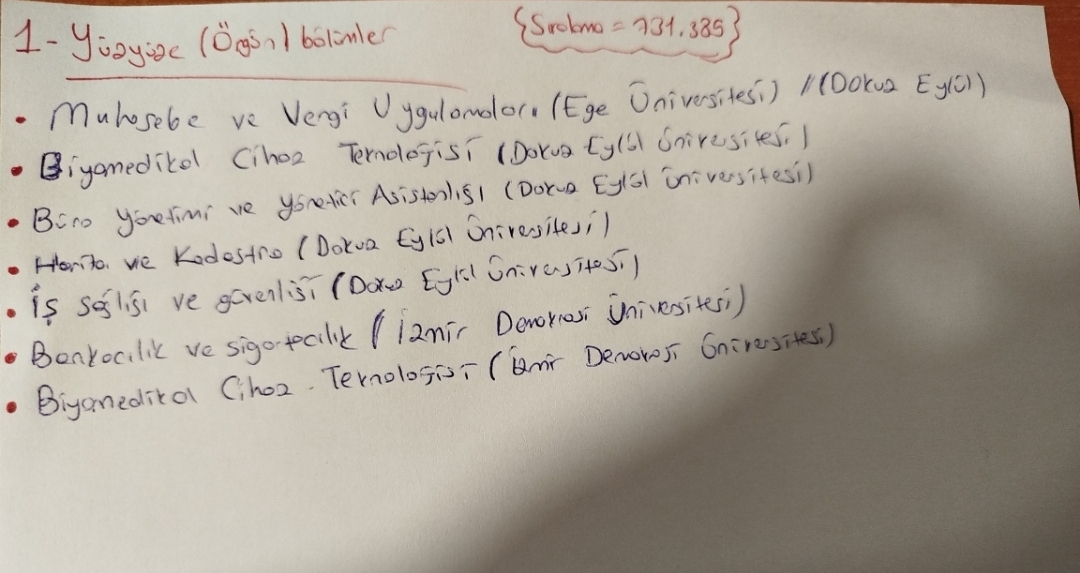 1- Yüzyüze (Örgün) bölümler {Sıralama = 731.385}
• Muhasebe ve Vergi Uygulamaları (Ege Üniversitesi) // (Dokuz Eylül)
• Biyomedikal Cihaz Teknolojisi (Dokuz Eylül Üniversitesi)
• Büro yönetimi ve yönetici Asistanlığı (Dokuz Eylül Üniversitesi)
• Harita ve Kadastro (Dokuz Eylül Üniversitesi)
• İş sağlığı ve güvenliği (Dokuz Eylül Üniversitesi)
• Bankacılık ve sigortacılık (İzmir Demokrasi Üniversitesi)
• Biyomedikal Cihaz Teknolojisi (İzmir Demokrasi Üniversitesi)